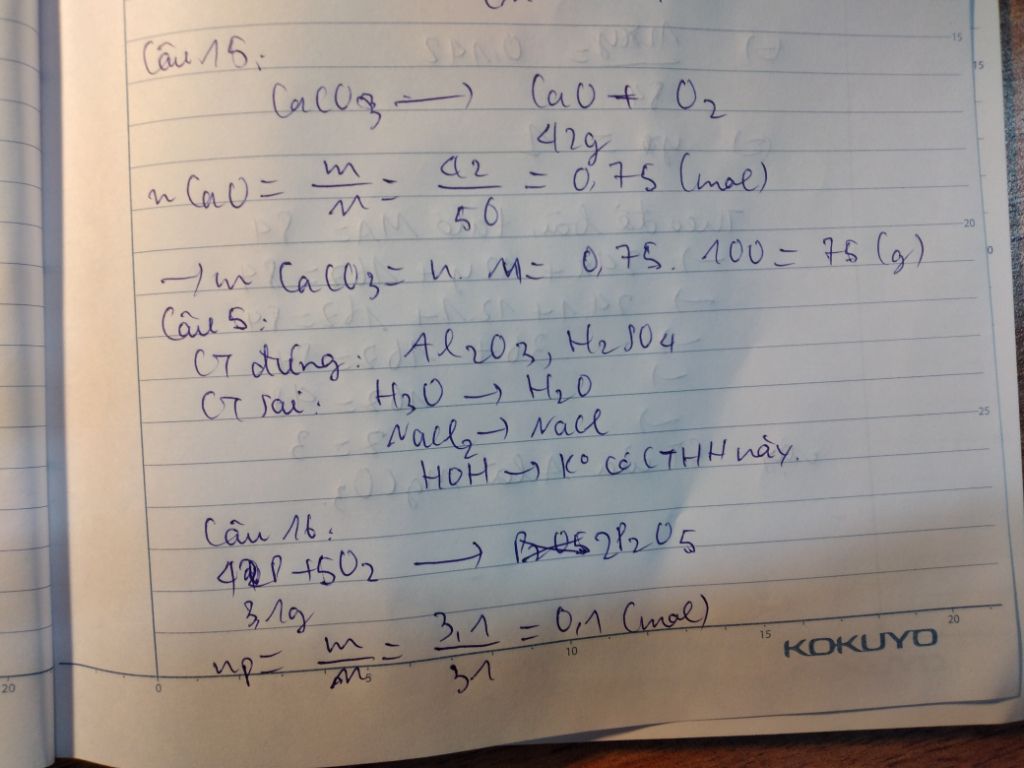 Câu 15:
CaCO3 → CaO + O2
42g
nCaO = m/M = 42/56 = 0,75 (mol)
→ m CaCO3 = n. M = 0,75. 100 = 75 (g)
Câu 5:
CT đúng: Al2O3, H2SO4
CT sai: H3O → H2O
NaCl2 → NaCl
HOH → K° có CTHH này.
Câu 16:
4P + 5O2 → 2P2O5
3,1g
nP = m/M = 3,1/31 = 0,1 (mol)
KOKUYO
15
15
20
0
25
20
0
5
10
15
20